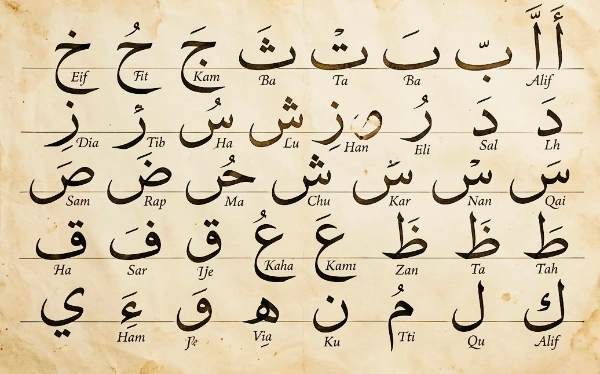 أَ اَّ بّ بَ تْ ثَ جَ حُ خ
Alif Ba Ta Ba Kam Fit Eif
دَ دَ رُ زِ ش سُ رٌ زِ
Lh Sal Eli Han Lu Ha Tib Dia
سَ سْ سّ ش حُر ضَ صَ
Qai Nan Kar Chu Ma Rap Sam
طَ ظَ ظَ عَ عُ ق فَ ق
Tah Ta Zan Kamı Kaha Ije Sar Ha
ك ل مُ ن ه وَ ءَ ي
Alif Qu Tti Ku Via Ham